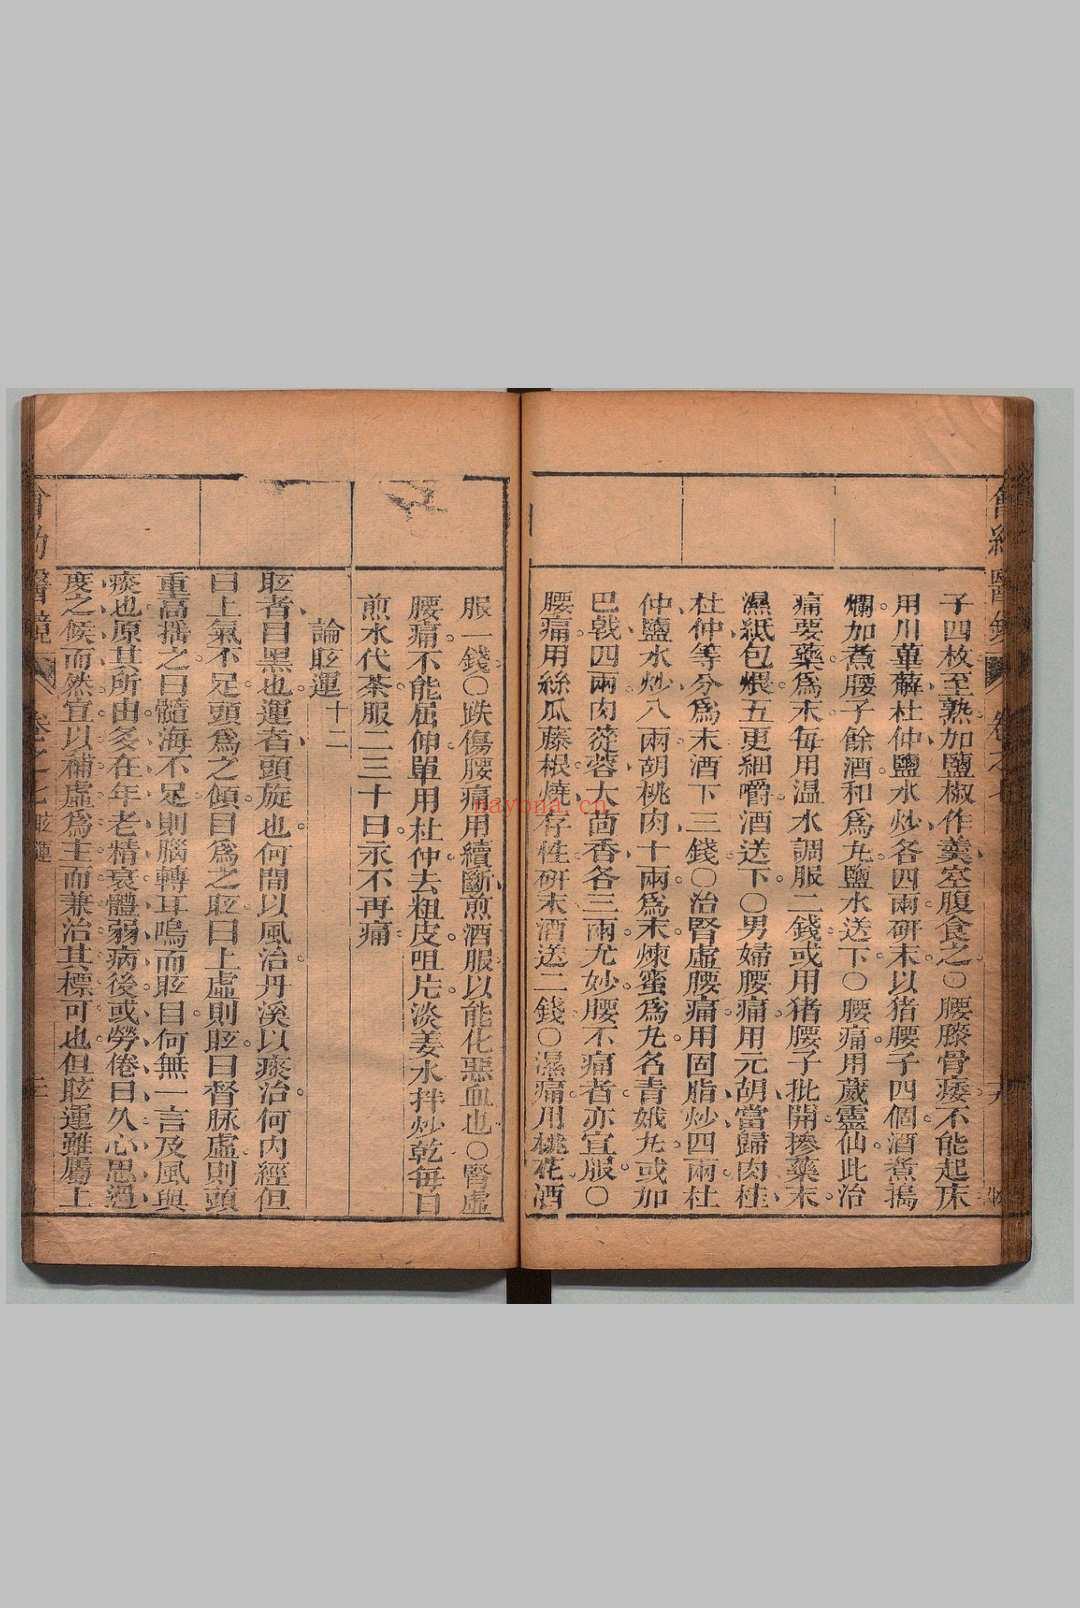 子四枚至熟加鹽椒作羹空腹食之〇腰膝骨痿不能起床
用川萆薢杜仲鹽水炒各四兩研末以猪腰子四個酒煮搗
爛加煮腰子餘酒和爲丸鹽水送下〇腰痛用葳靈仙此治
痛要藥爲末每用温水調服二錢或用猪腰子批開摻藥末
濕紙包煨五更細嚼酒送下〇男婦腰痛用元胡當歸肉桂
杜仲等分爲末酒下三錢〇治腎虛腰痛用固脂炒四兩杜
仲鹽水炒八兩胡桃肉十兩爲末煉蜜爲丸名青娥丸或加
巴戟四兩肉蓯蓉大茴香各三兩尤妙腰不痛者亦宜服〇
腰痛用絲瓜藤根燒存性研末酒送二錢〇濕痛用桃花酒
服一錢〇跌傷腰痛用續斷煎酒服以能化惡血也〇腎虛
腰痛不能屈伸單用杜仲去粗皮咀片淡姜水拌炒乾每日
煎水代茶服二三十日永不再痛
論眩運十二
眩者目黑也運者頭旋也何間以風治丹溪以痰治何内經但
曰上氣不足頭爲之傾目爲之眩曰上虛則眩曰督脉虛則頭
重高搖之曰髓海不足則腦轉耳鳴而眩目何無一言及風與
痰也原其所由多在年老精衰體弱病後或勞倦日久心思過
度之候而然宜以補虛爲主而兼治其標可也但眩運雖屬上
會約醫鏡 卷之七 眩運 二十
nayona.cn